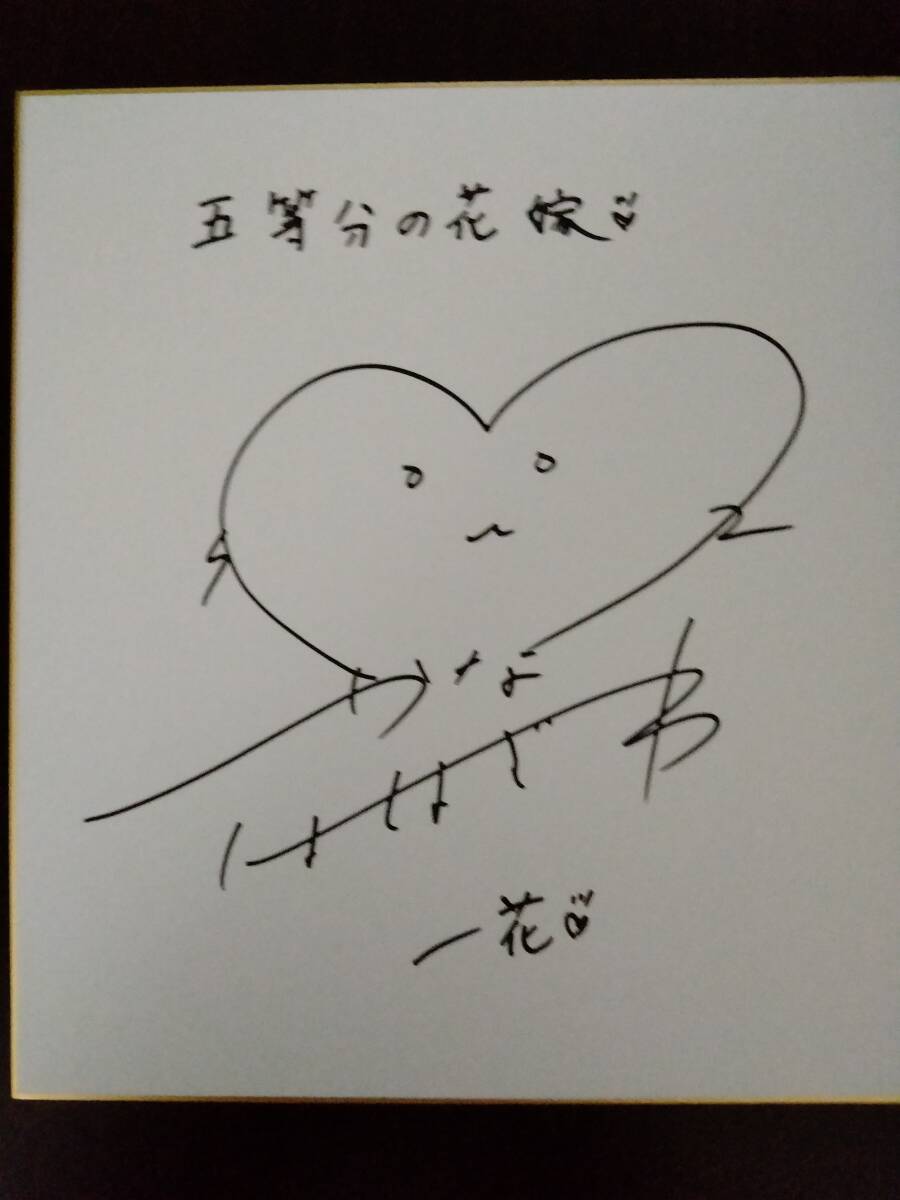 五等分の花嫁
はなざわ
かな
一花